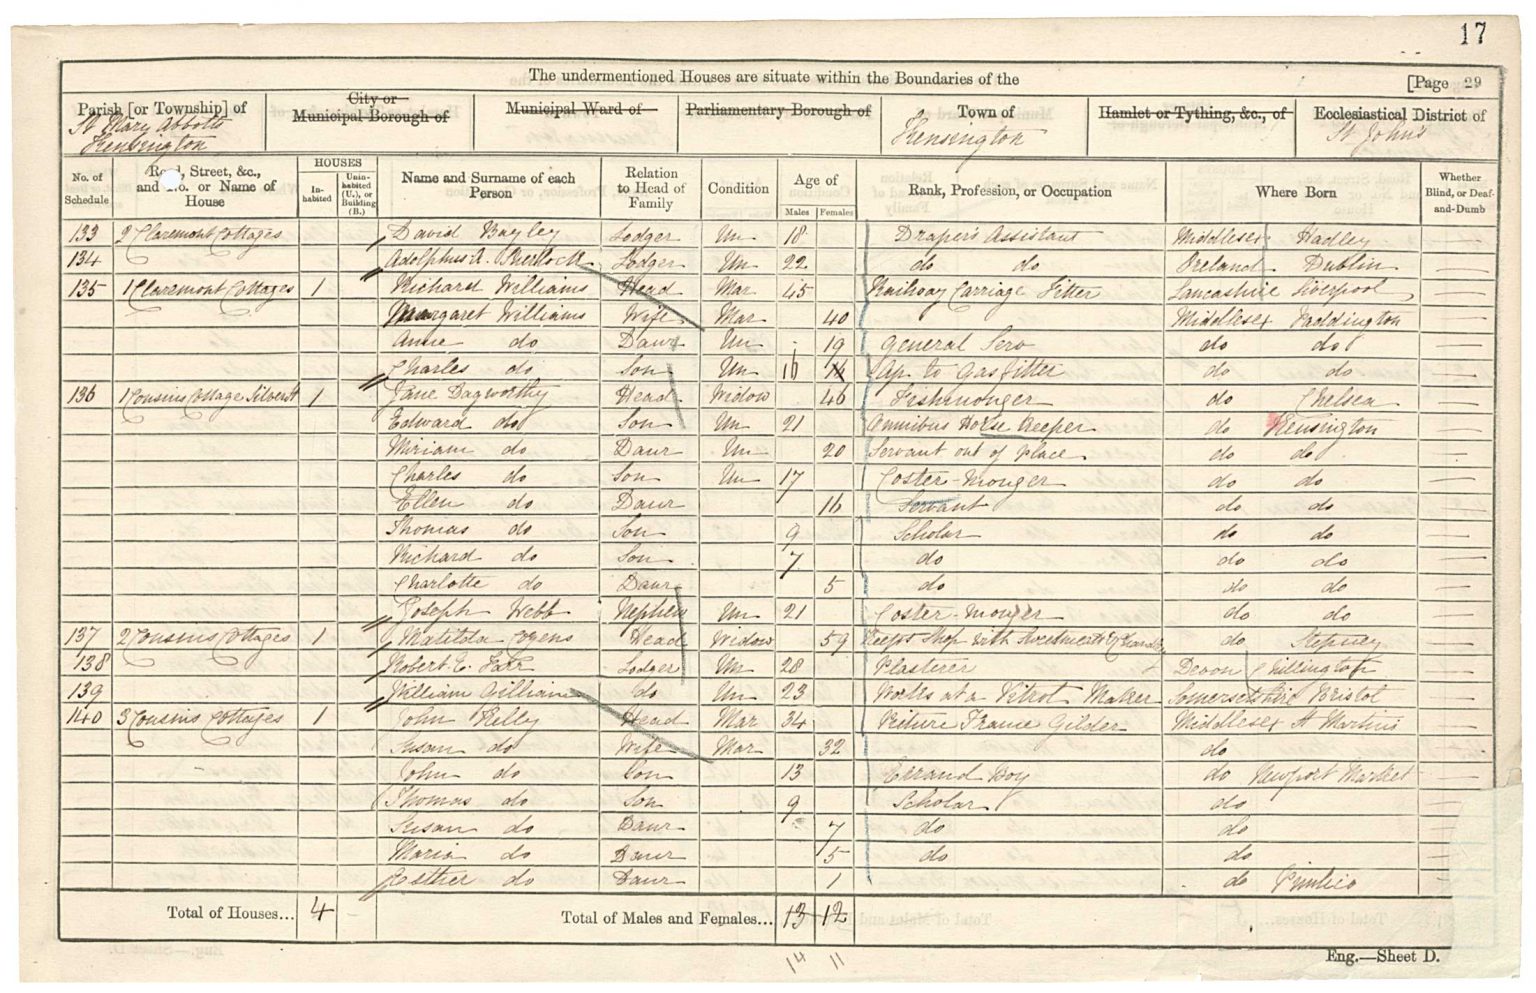 17
The undermentioned Houses are situate within the Boundaries of the [Page 29
Parish [or Township] of City or Municipal Borough of Municipal Ward of Parliamentary Borough of Town of Hamlet or Tything, &c., of Ecclesiastical District of
St Mary Abbotts Kensington Kensington St John's
No. of Schedule Road, Street, &c., and No. or Name of House HOUSES Inhabited Uninhabited (U.), or Building (B.) Name and Surname of each Person Relation to Head of Family Condition Age of Males Females Rank, Profession, or Occupation Where Born Whether Blind, or Deaf-and-Dumb
133 2 Claremont Cottages David Bayley Lodger Un 18 Draper's Assistant Middlesex Hadley
134 Adolphus A. Lodger Un 22 do do Ireland Dublin
135 1 Claremont Cottages 1 Richard Williams Head Mar 45 Railway Carriage Fitter Lancashire Liverpool
Margaret Williams Wife Mar 40 Middlesex Paddington
Anne do Daur Un 19 General Serv do do
Charles do Son Un 16 16 Ap. to Gasfitter do do
136 1 Cousins Cottage Silver St 1 Jane Dagworthy Head Widow 46 Fishmonger do Chelsea
Edward do Son Un 21 Omnibus Horse Keeper do Kensington
Miriam do Daur Un 20 Servant out of Place do do
Charles do Son Un 17 Coster-monger do do
Ellen do Daur 16 Servant do do
Thomas do Son 9 Scholar do do
Richard do Son 7 do do do
Charlotte do Daur 5 do do do
Joseph Webb Nephew Un 21 Coster-monger do do
137 2 Cousins Cottages 1 Matilda Head Widow 59 Keeps Shop with Sweetmeats & do Stepney
138 Robert E. Farr Lodger Un 28 Plasterer Devon Chillington
139 William Gilliam do Un 23 Works at a Maker Somersetshire Bristol
140 3 Cousins Cottages 1 John Kelly Head Mar 34 Picture Frame Gilder Middlesex St Martins
Susan do Wife Mar 32 do
John do Son 13 Errand Boy do Newport Market
Thomas do Son 9 Scholar do
Susan do Daur 7 do do
Maria do Daur 5 do do
Esther do Daur 1 do Pimlico
Total of Houses... 4 Total of Males and Females... 13 12
14 11
Eng.—Sheet D.